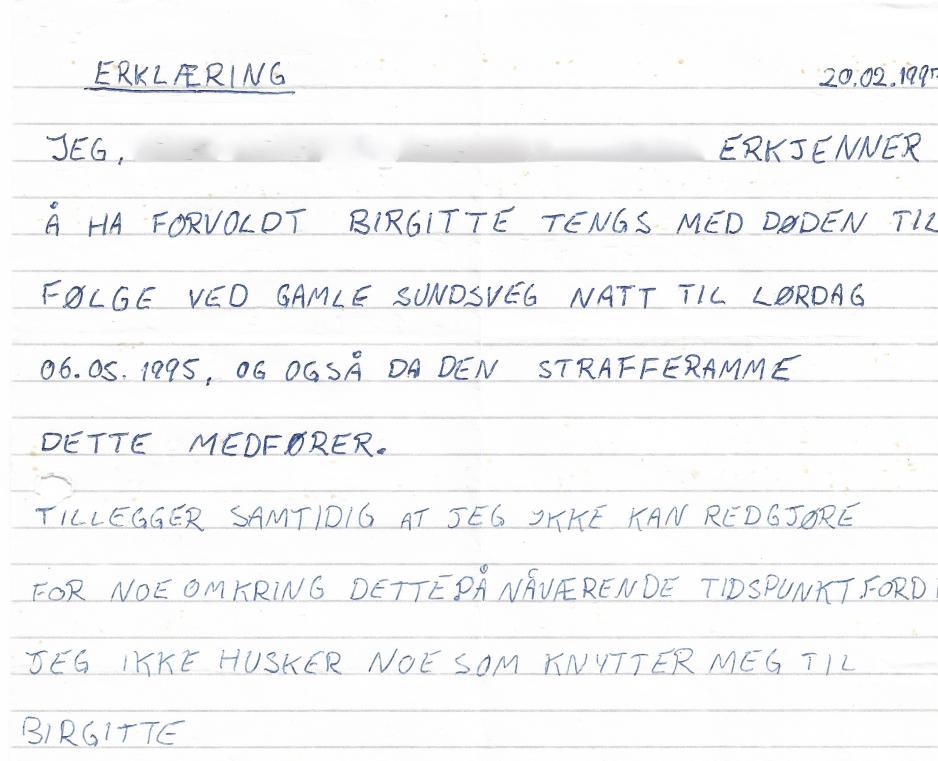 ERKLÆRING
20.02.199
JEG, ERKJENNER
Å HA FORVOLDT BIRGITTE TENGS MED DØDEN TIL
FØLGE VED GAMLE SUNDSVEG NATT TIL LØRDAG
06.05.1995, OG OGSÅ DA DEN STRAFFERAMME
DETTE MEDFØRER.
TILLEGGER SAMTIDIG AT JEG IKKE KAN REDGJØRE
FOR NOE OMKRING DETTE PÅ NÅVÆRENDE TIDSPUNKT. FORDI
JEG IKKE HUSKER NOE SOM KNYTTER MEG TIL
BIRGITTE